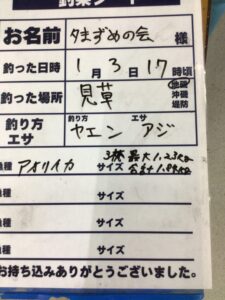 釣果シート
お名前 夕まずめの会 様
釣った日時 1月3日17時頃
釣った場所 見草 地磯 沖磯 堤防
釣り方 エサ 釣り方 ヤエン エサ アジ
魚種 アオリイカ サイズ 3杯 最大1.23kg 合計1.94kg
魚種 サイズ
魚種 サイズ
魚種 サイズ
お持ち込みありがとうございました。